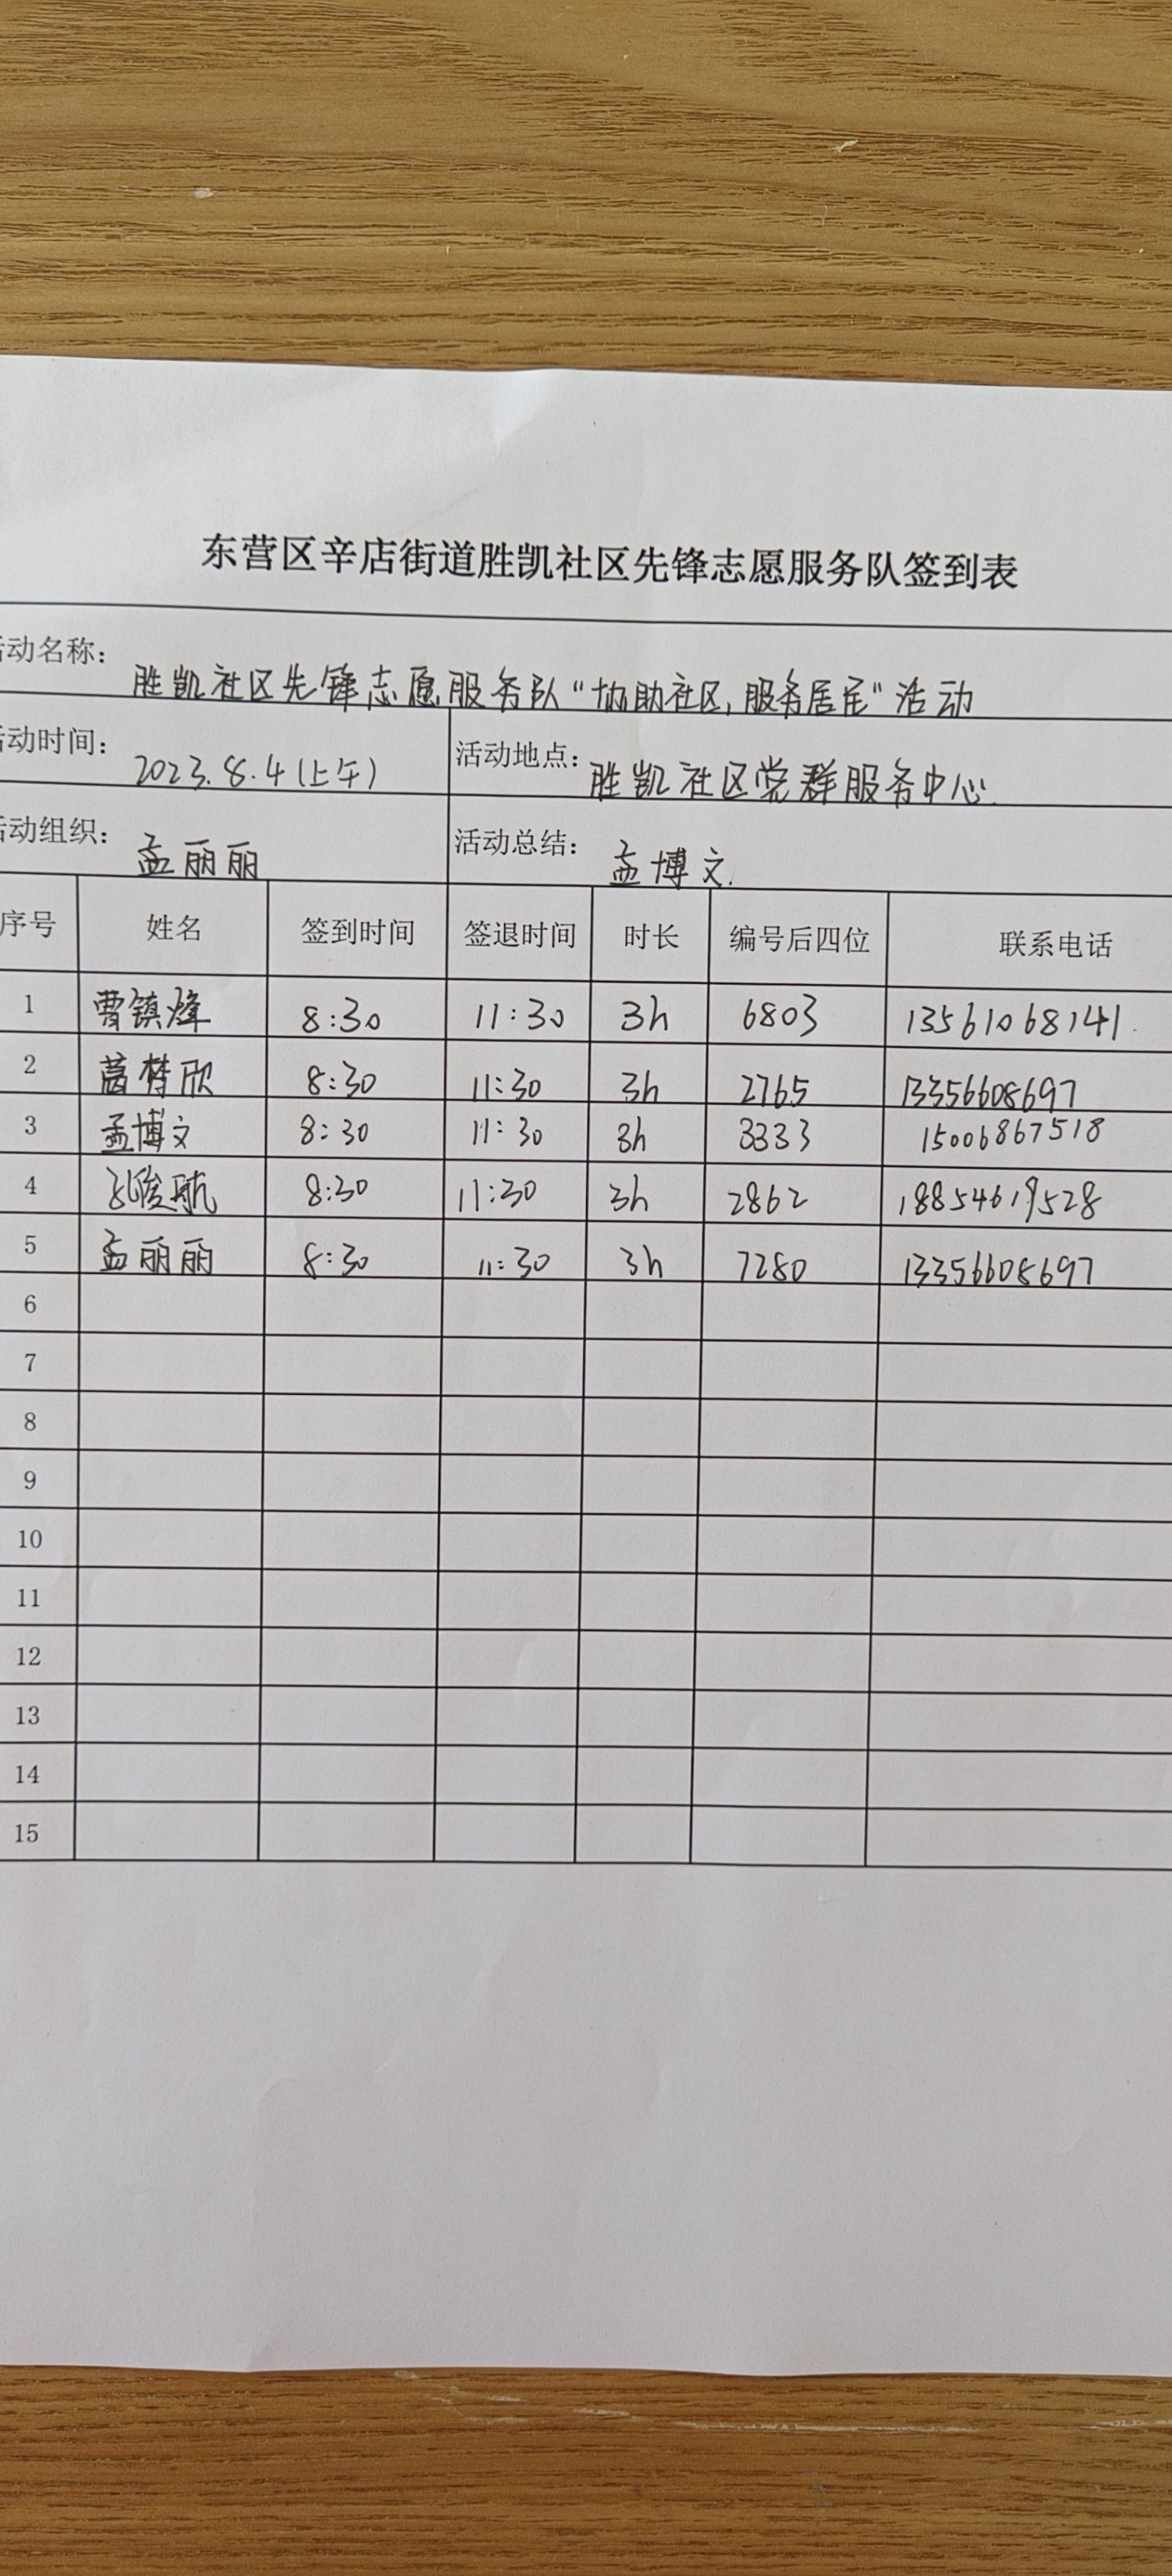 东营区辛店街道胜凯社区先锋志愿服务队签到表
活动名称： 胜凯社区先锋志愿服务队“协助社区,服务居民”活动
活动时间： 2023.8.4(上午) 活动地点： 胜凯社区党群服务中心
活动组织： 孟丽丽 活动总结： 孟博文.
序号 姓名 签到时间 签退时间 时长 编号后四位 联系电话
1 曹镇烽 8:30 11:30 3h 6803 13561068141
2 8:30 11:30 3h 2765 13356608697
3 孟博文 8:30 11:30 3h 3333 15006867518
4 8:30 11:30 3h 2862 18854619528
5 孟丽丽 8:30 11:30 3h 7280 13356608697
6
7
8
9
10
11
12
13
14
15